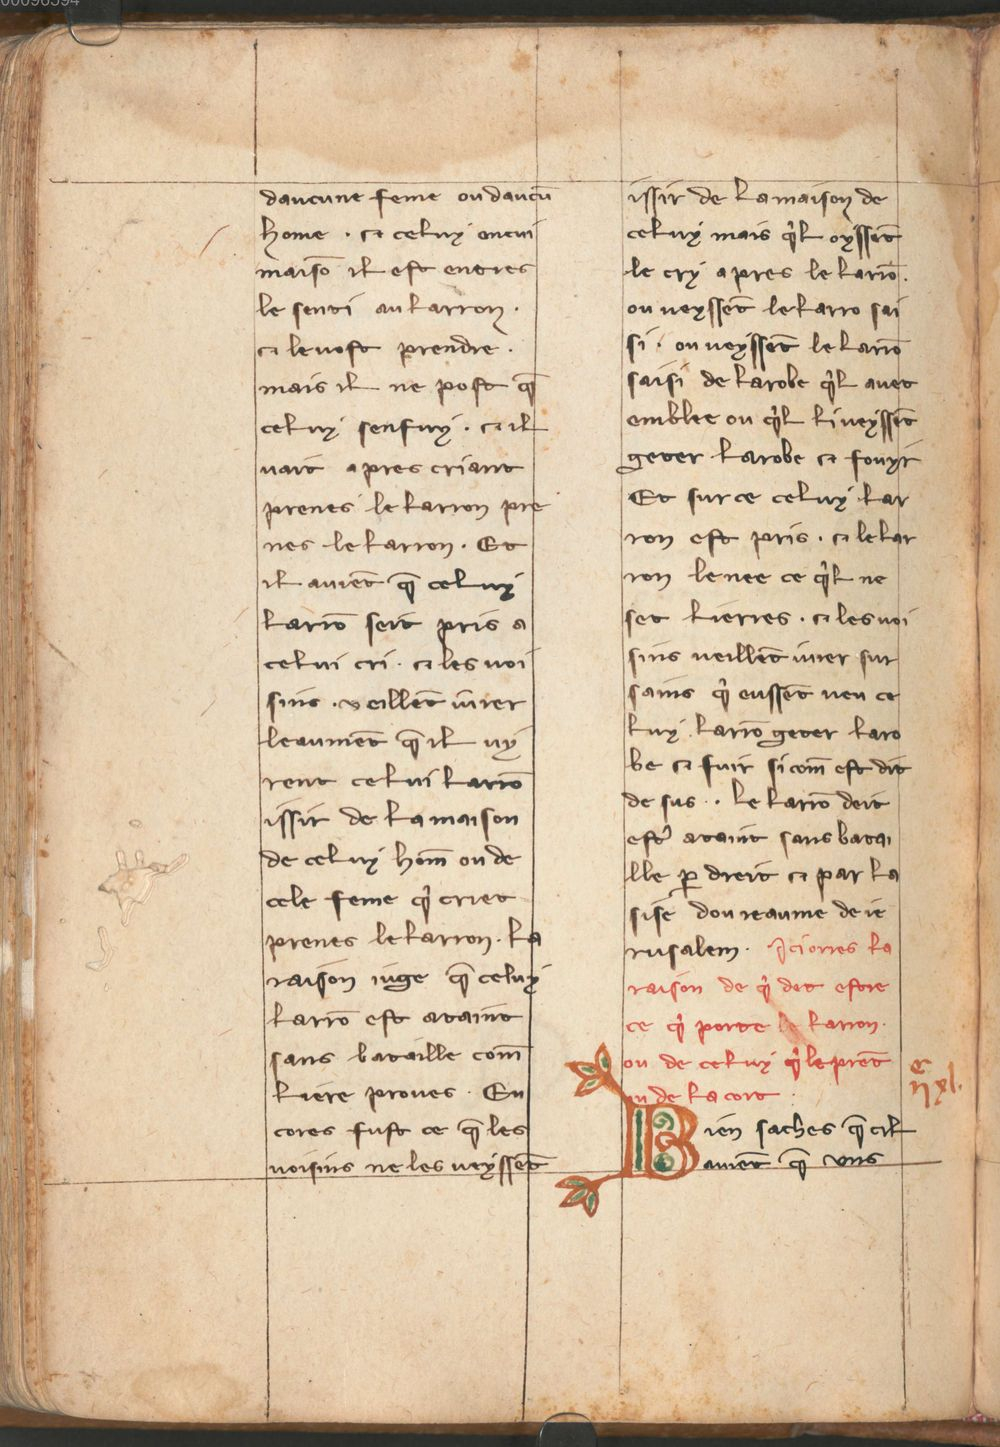 00096394
daucune feme ou daucū
home · et celuy en cui
maisō il est entres
le senti au larron ·
et le vost prendre ·
mais il ne post q̄
celuy senfuy · et il
vait apres criant
prenes le larron pre
nes le larron · Et
il auiēt q̄ celuy
larrō seit pris a
celui cri · et les uoi
sins · veillēt iurer
leaumēt q̄ il uy
rent celui larrō
issir de la maison
de celuy hom̄ ou de
cele feme qⁱ criet
prenes le larron · la
raison iuge q̄ celuy
larrō est ataint
sans bataille com̄
liere proues · En
cores fust ce q̄ les
uoisins ne les ueyssēt
issir de la maison de
celuy mais qⁱl oyssēt
le cry apres le larrō ·
ou ueyssēt le larro sai
si · ou ueyssēt le larrō
saisi de la robe qⁱl auet
emblee ou qⁱl li ueyssēt
geter la robe et fouyr
Et sur ce celuy lar
ron est pris · et le lar
ron le nee ce qⁱl ne
set lierres · et les uoi
sins ueillēt iurer sur
sains qⁱ eussēt ueu ce
luy larrō geter la ro
be et fuir si com̄ est dit
de sus · · le larrō deit
estʳ ataint sans batai
lle ꝑ dreit et par la
sise dou reaume de ie
rusalem · Ici orres la
raison de qⁱ det estre
ce qⁱ porte le larron ·
ou de celuy qⁱ le prēt
ou de la cort ·
Bien saches q̄ cil
auiēt q̄ vns
c
nxl.